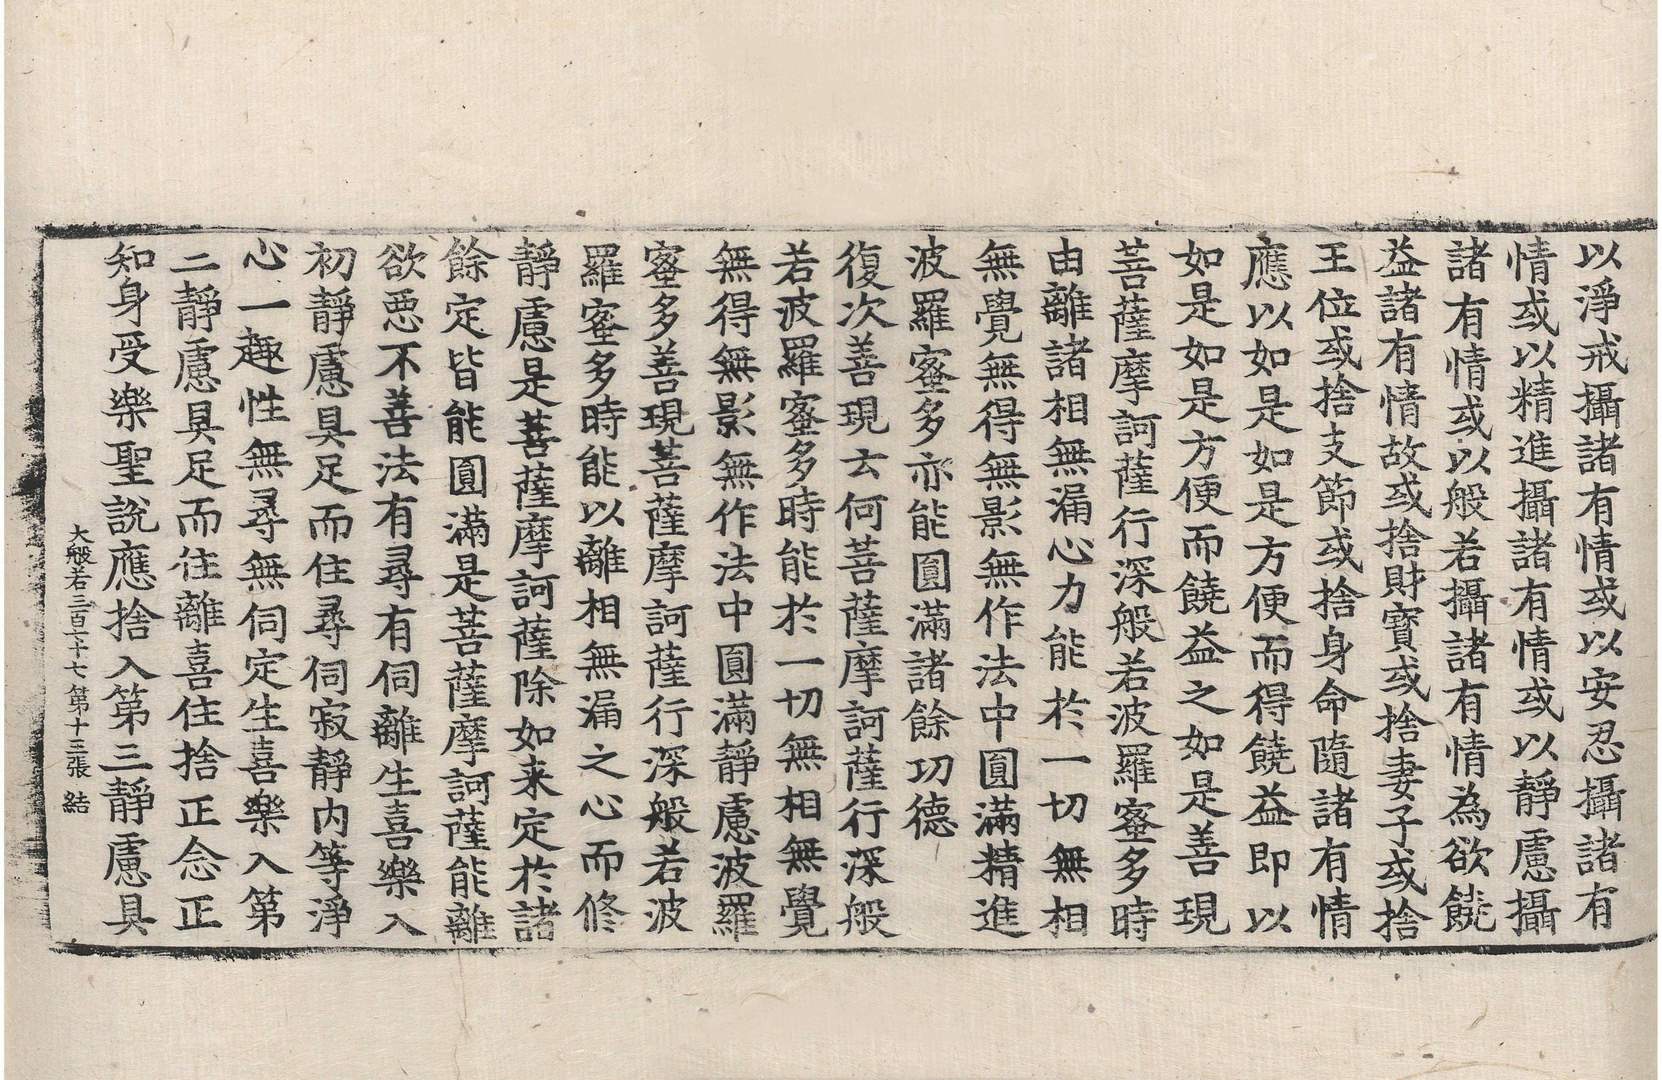 以淨戒攝諸有情或以安忍攝諸有
情或以精進攝諸有情或以靜慮攝
諸有情或以般若攝諸有情為欲饒
益諸有情故或捨財寶或捨妻子或捨
王位或捨支節或捨身命隨諸有情
應以如是如是方便而得饒益即以
如是如是方便而饒益之如是善現
菩薩摩訶薩行深般若波羅蜜多時
由離諸相無漏心力能於一切無相
無覺無得無影無作法中圓滿精進
波羅蜜多亦能圓滿諸餘功德
復次善現云何菩薩摩訶薩行深般
若波羅蜜多時能於一切無相無覺
無得無影無作法中圓滿靜慮波羅
蜜多善現菩薩摩訶薩行深般若波
羅蜜多時能以離相無漏之心而修
靜慮是菩薩摩訶薩除如来定於諸
餘定皆能圓滿是菩薩摩訶薩能離
欲惡不善法有尋有伺離生喜樂入
初靜慮具足而住尋伺寂靜內等淨
心一趣性無尋無伺定生喜樂入第
二靜慮具足而住離喜住捨正念正
知身受樂聖說應捨入第三靜慮具
大般若三百七十七 第十三張 結